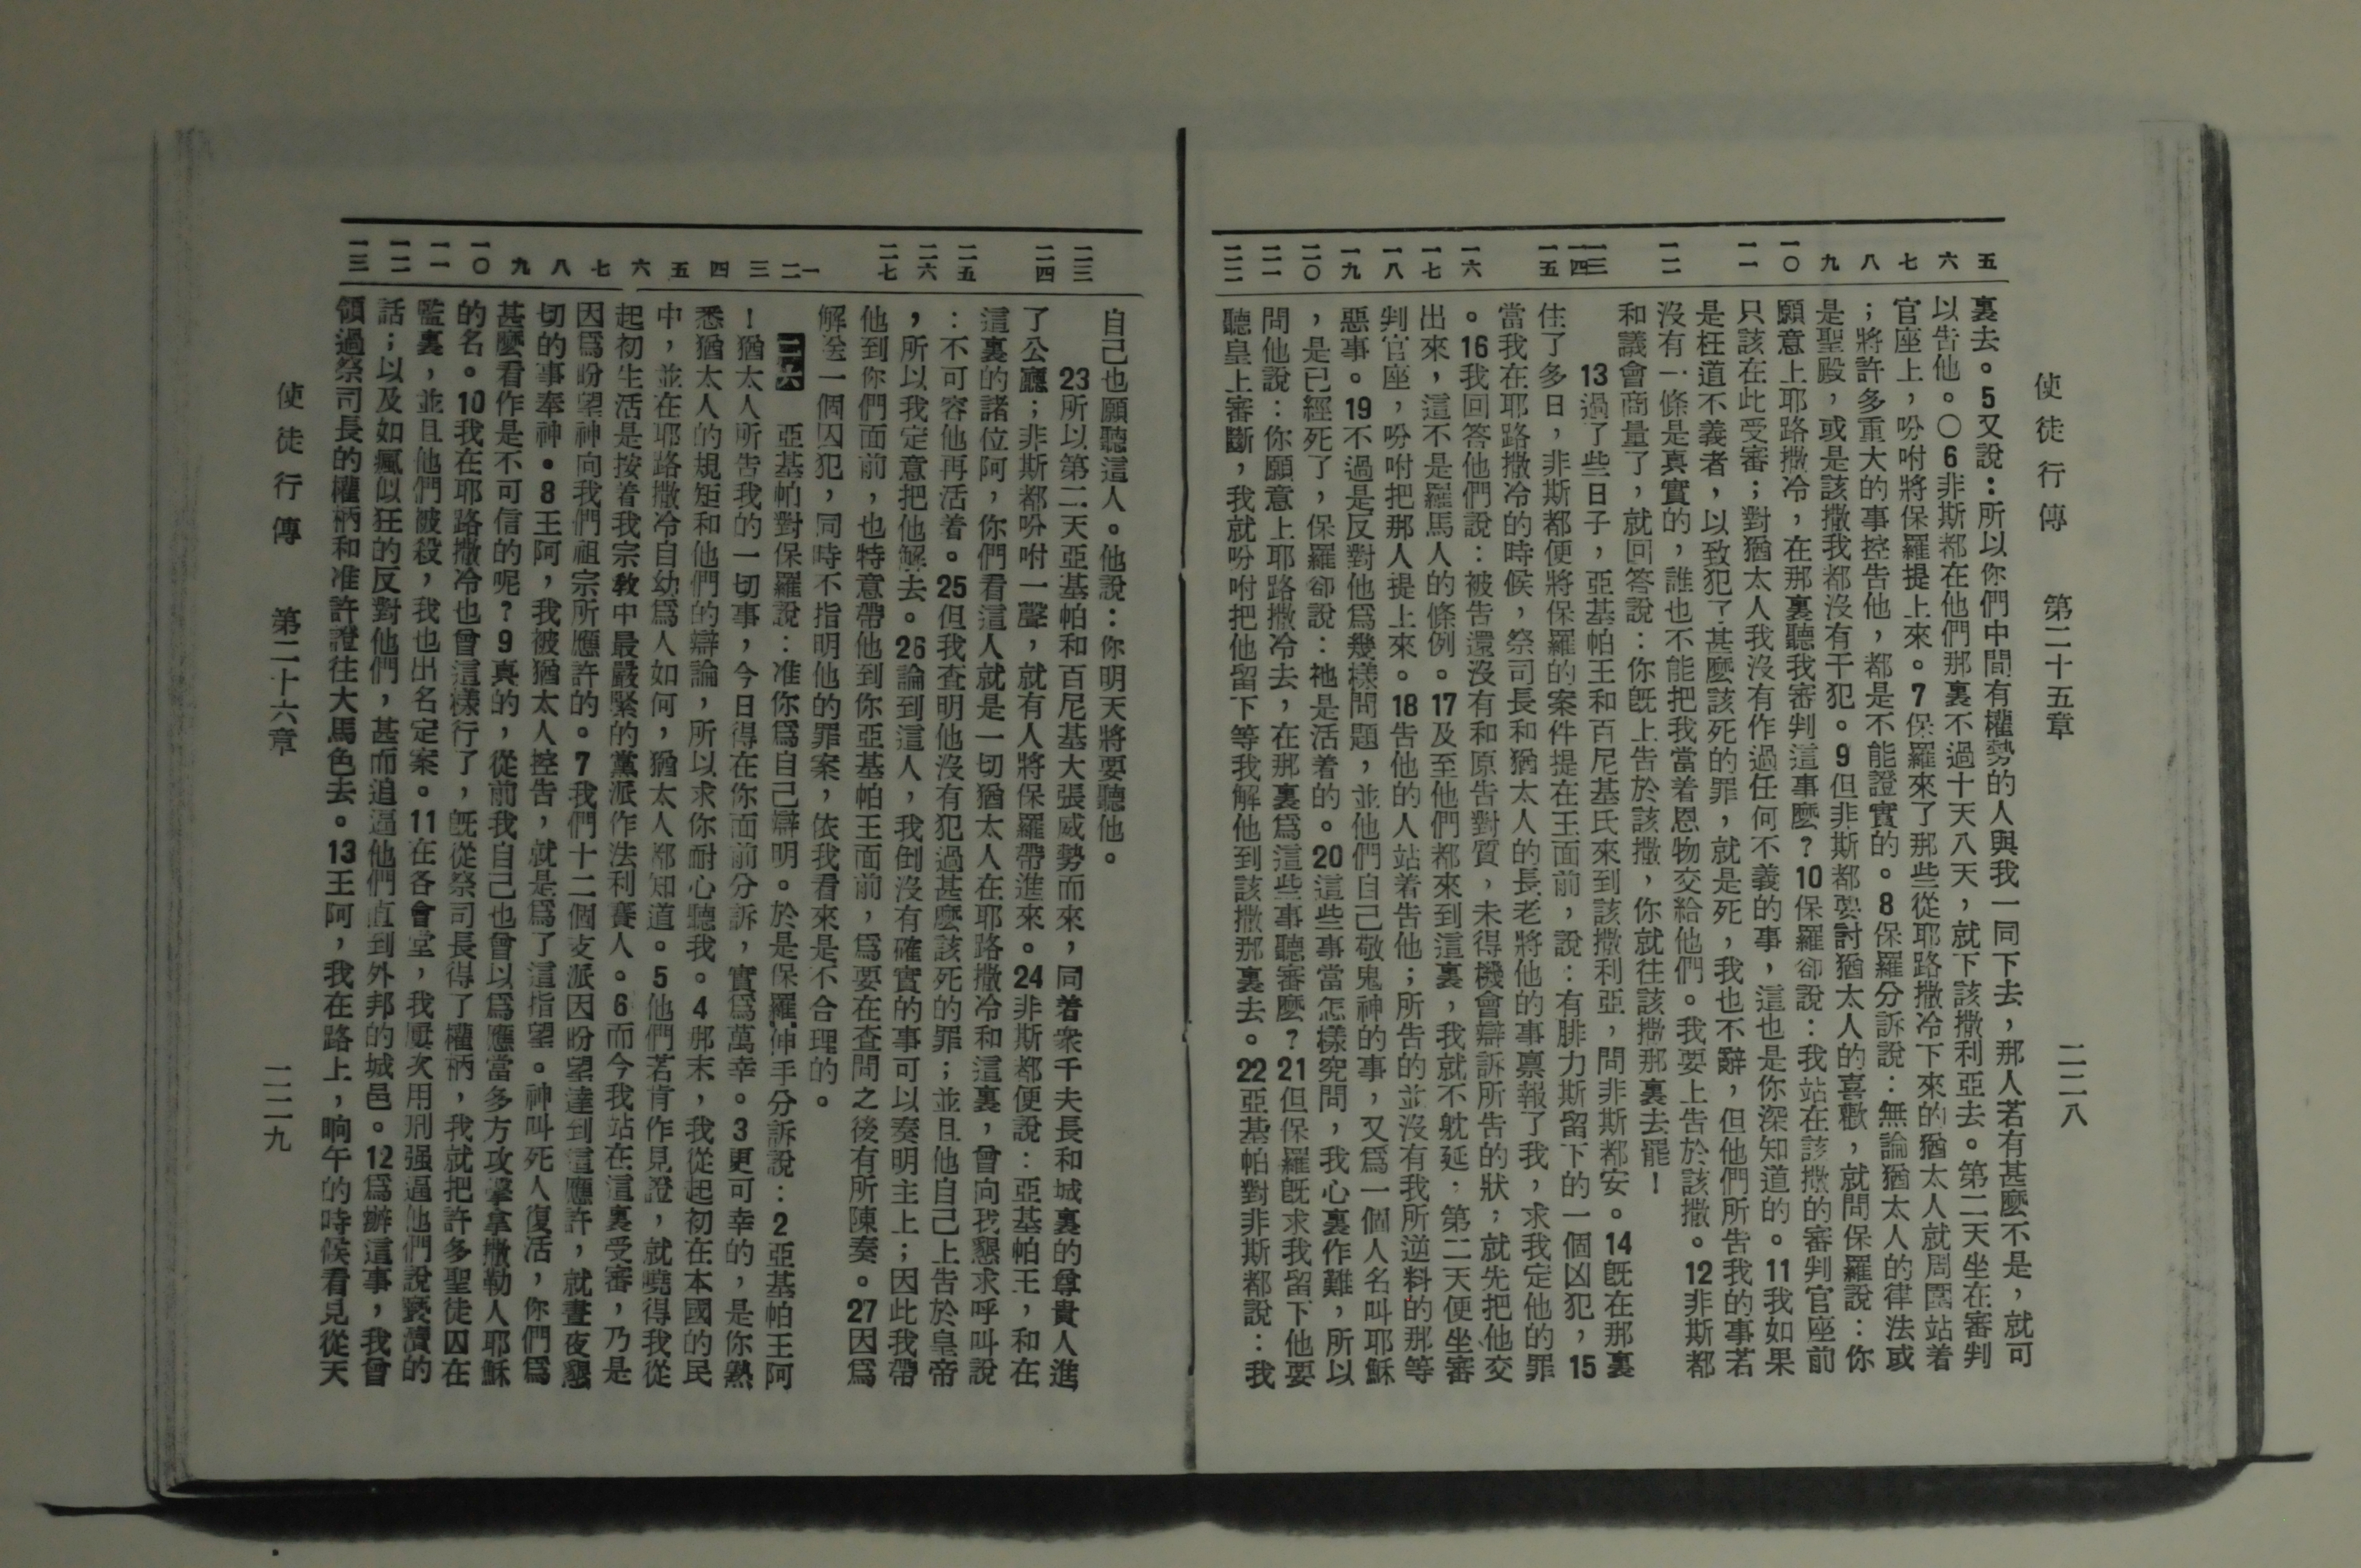 使徒行傳　第二十五章　二二八
五 六 七 八 九 一〇 一一 一二 一三 一四 一五 一六 一七 一八 一九 二〇 二一 二二
裏去。5又說：所以你們中間有權勢的人與我一同下去，那人若有甚麼不是，就可
以告他。〇6非斯都在他們那裏不過十天八天，就下該撒利亞去。第二天坐在審判
官座上，吩咐將保羅提上來。7保羅來了那些從耶路撒冷下來的猶太人就周圍站着
；將許多重大的事控告他，都是不能證實的。8保羅分訴說：無論猶太人的律法或
是聖殿，或是該撒我都沒有干犯。9但非斯都要討猶太人的喜歡，就問保羅說：你
願意上耶路撒冷，在那裏聽我審判這事麼？10保羅卻說：我站在該撒的審判官座前
只該在此受審；對猶太人我沒有作過任何不義的事，這也是你深知道的。11我如果
是枉道不義者，以致犯了甚麼該死的罪，就是死，我也不辭，但他們所告我的事若
沒有一條是真實的，誰也不能把我當着恩物交給他們。我要上告於該撒。12非斯都
和議會商量了，就回答說：你旣上告於該撒，你就往該撒那裏去罷！
13過了些日子，亞基帕王和百尼基氏來到該撒利亞，問非斯都安。14旣在那裏
住了多日，非斯都便將保羅的案件提在王面前，說：有腓力斯留下的一個囚犯，15
當我在耶路撒冷的時候，祭司長和猶太人的長老將他的事禀報了我，求我定他的罪
。16我回答他們說：被告還沒有和原告對質，未得機會辯訴所告的狀，就先把他交
出來，這不是羅馬人的條例。17及至他們都來到這裏，我就不躭延，第二天便坐審
判官座，吩咐把那人提上來。18告他的人站着告他；所告的並沒有我所逆料的那等
惡事。19不過是反對他爲幾樣問題，並他們自己敬鬼神的事，又爲一個人名叫耶穌
，是已經死了，保羅卻說：祂是活着的。20這些事當怎樣究問，我心裏作難，所以
問他說：你願意上耶路撒冷去，在那裏爲這些事聽審麼？21但保羅旣求我留下他要
聽皇上審斷，我就吩咐把他留下等我解他到該撒那裏去。22亞基帕對非斯都說：我
二三 二四 二五 二六 二七 一 二 三 四 五 六 七 八 九 一〇 一一 一二 一三
自己也願聽這人。他說：你明天將要聽他。
23所以第二天亞基帕和百尼基大張威勢而來，同着衆千夫長和城裏的尊貴人進
了公廳；非斯都吩咐一聲，就有人將保羅帶進來。24非斯都便說：亞基帕王，和在
這裏的諸位阿，你們看這人就是一切猶太人在耶路撒冷和這裏，曾向我懇求呼叫說
：不可容他再活着。25但我查明他沒有犯過甚麼該死的罪；並且他自己上告於皇帝
，所以我定意把他解去。26論到這人，我倒沒有確實的事可以奏明主上；因此我帶
他到你們面前，也特意帶他到你亞基帕王面前，爲要在查問之後有所陳奏。27因爲
解送一個囚犯，同時不指明他的罪案，依我看來是不合理的。
二六　亞基帕對保羅說：准你爲自己辯明。於是保羅伸手分訴說：2亞基帕王阿
！猶太人所告我的一切事，今日得在你面前分訴，實爲萬幸。3更可幸的，是你熟
悉猶太人的規矩和他們的辯論，所以求你耐心聽我。4那末，我從起初在本國的民
中，並在耶路撒冷自幼爲人如何，猶太人都知道。5他們若肯作見證，就曉得我從
起初生活是按着我宗教中最嚴緊的黨派作法利賽人。6而今我站在這裏受審，乃是
因爲盼望神向我們祖宗所應許的。7我們十二個支派因盼望達到這應許，就晝夜懇
切的事奉神。8王阿，我被猶太人控告，就是爲了這指望。神叫死人復活，你們爲
甚麼看作是不可信的呢？9真的，從前我自己也曾以爲應當多方攻擊拿撒勒人耶穌
的名。10我在耶路撒冷也曾這樣行了，旣從祭司長得了權柄，我就把許多聖徒囚在
監裏，並且他們被殺，我也出名定案。11在各會堂，我屢次用刑强逼他們說褻瀆的
話；以及如瘋似狂的反對他們，甚而追逼他們直到外邦的城邑。12爲辦這事，我曾
領過祭司長的權柄和准許證往大馬色去。13王阿，我在路上，晌午的時候看見從天
使徒行傳　第二十六章　二二九